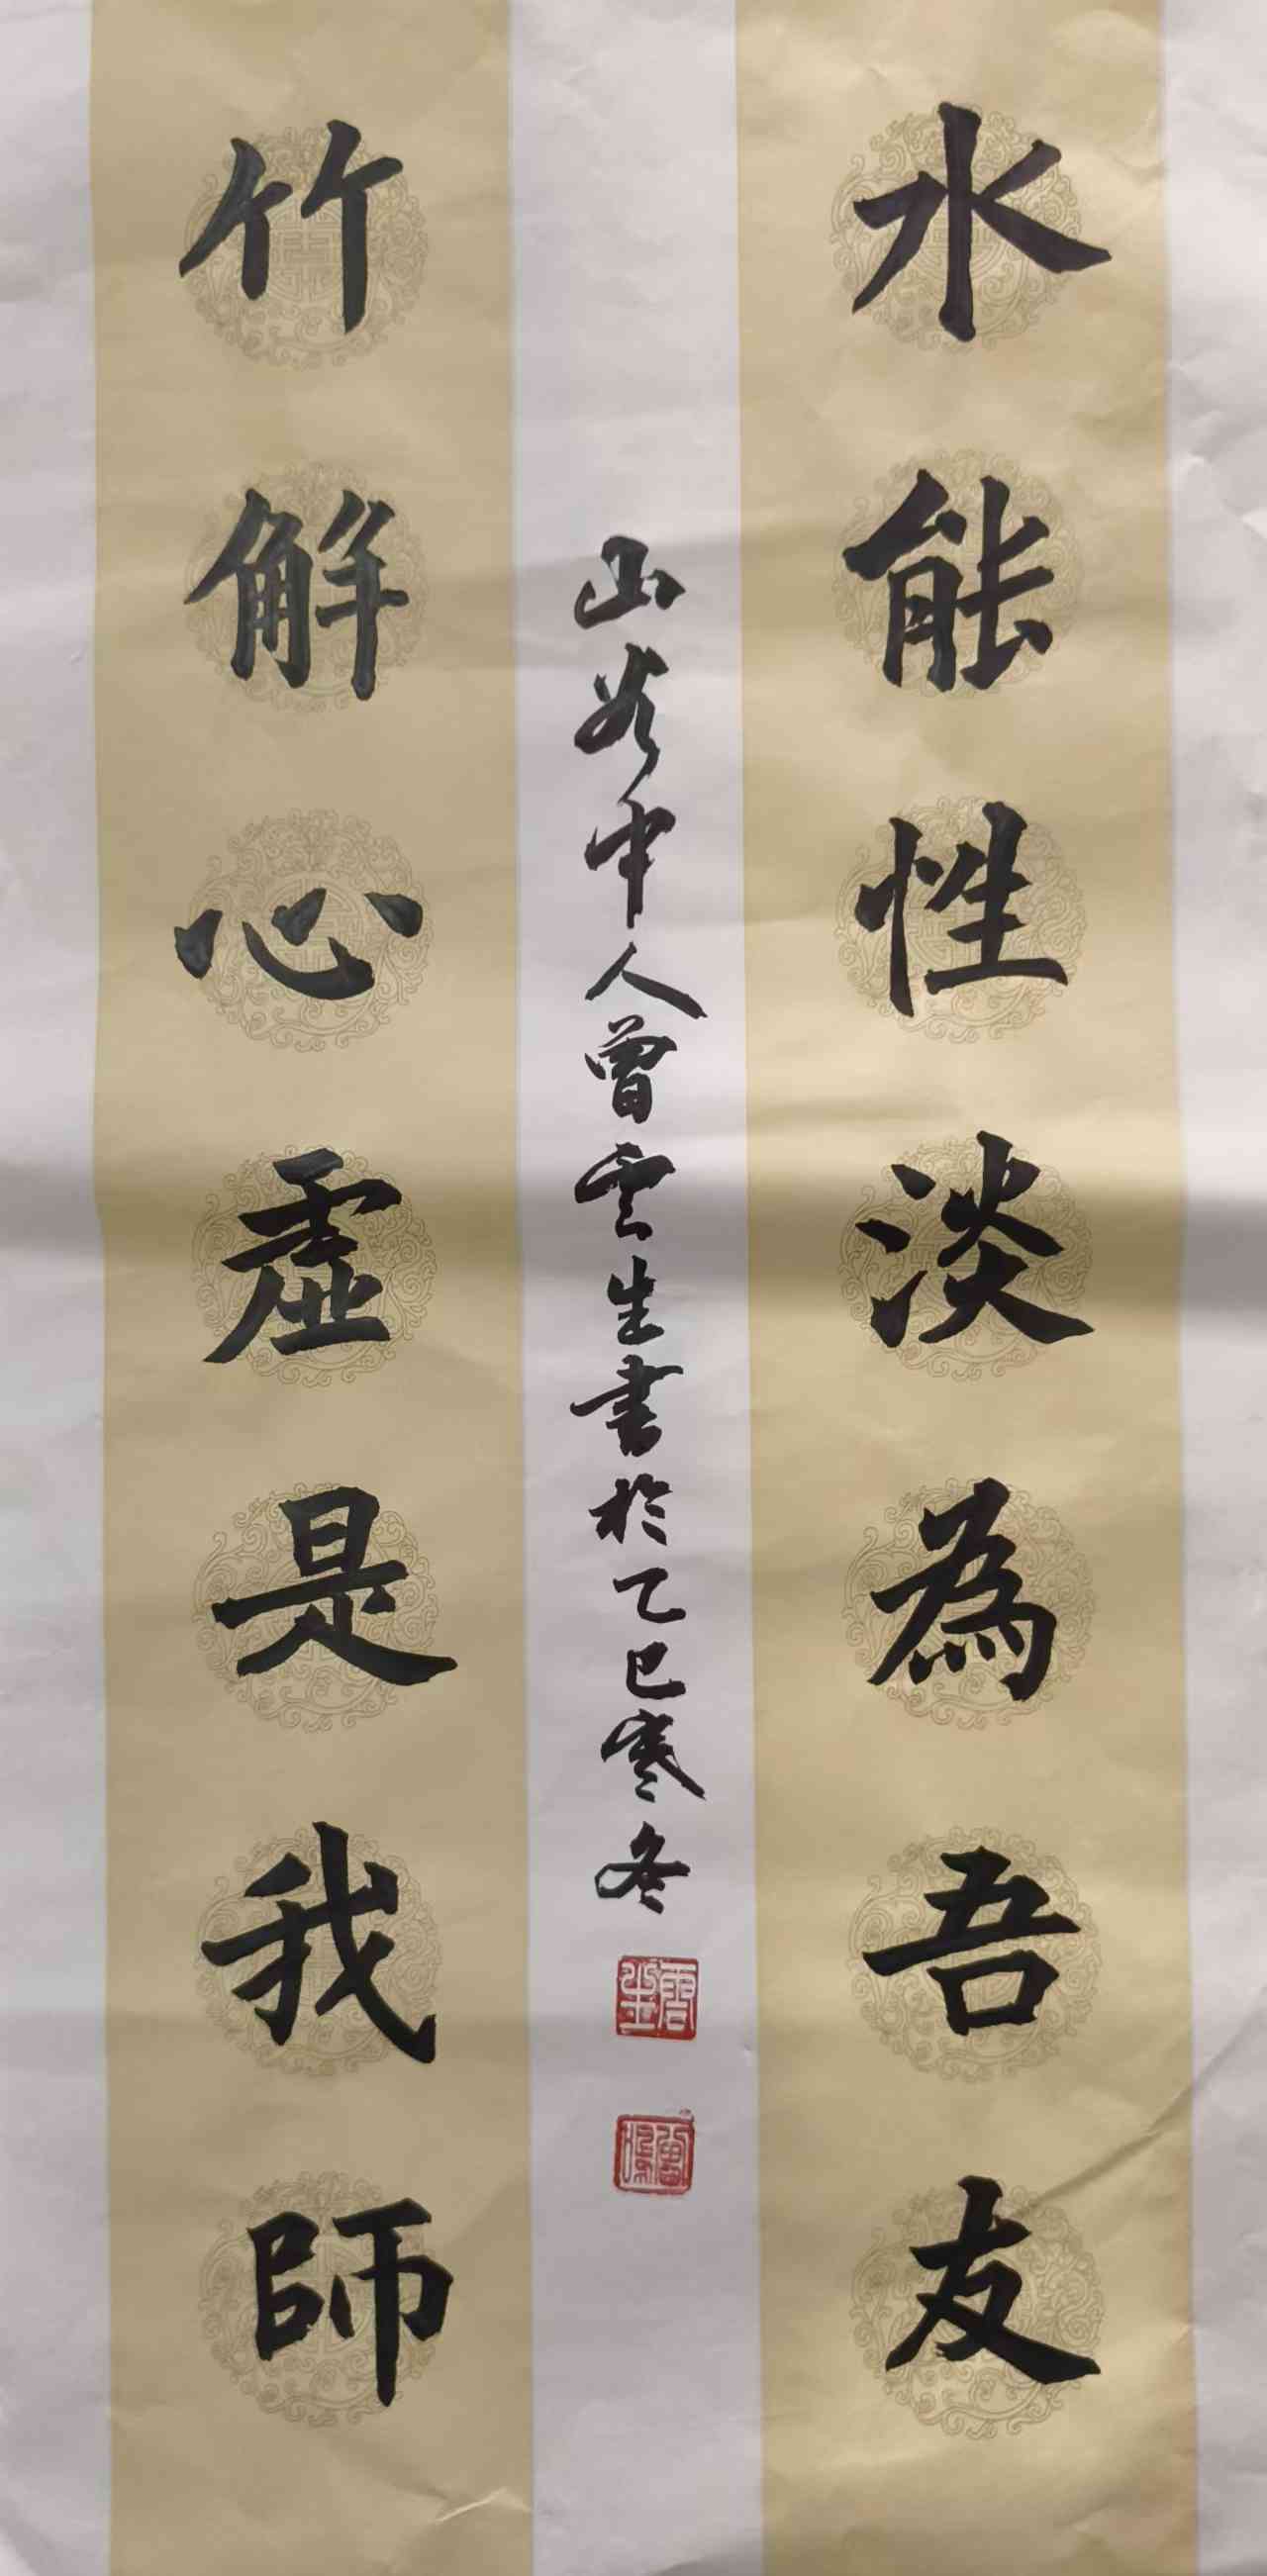 水能性淡為吾友
竹解心虛是我師
山谷中人曾雲生書於乙巳寒冬
雲生